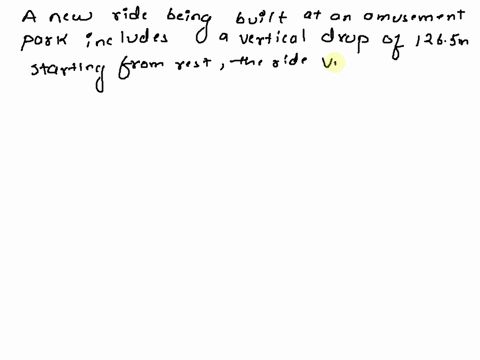 A new ride being built at an amusement
park includes a vertical drop of 126.5m
starting from rest, the ride v